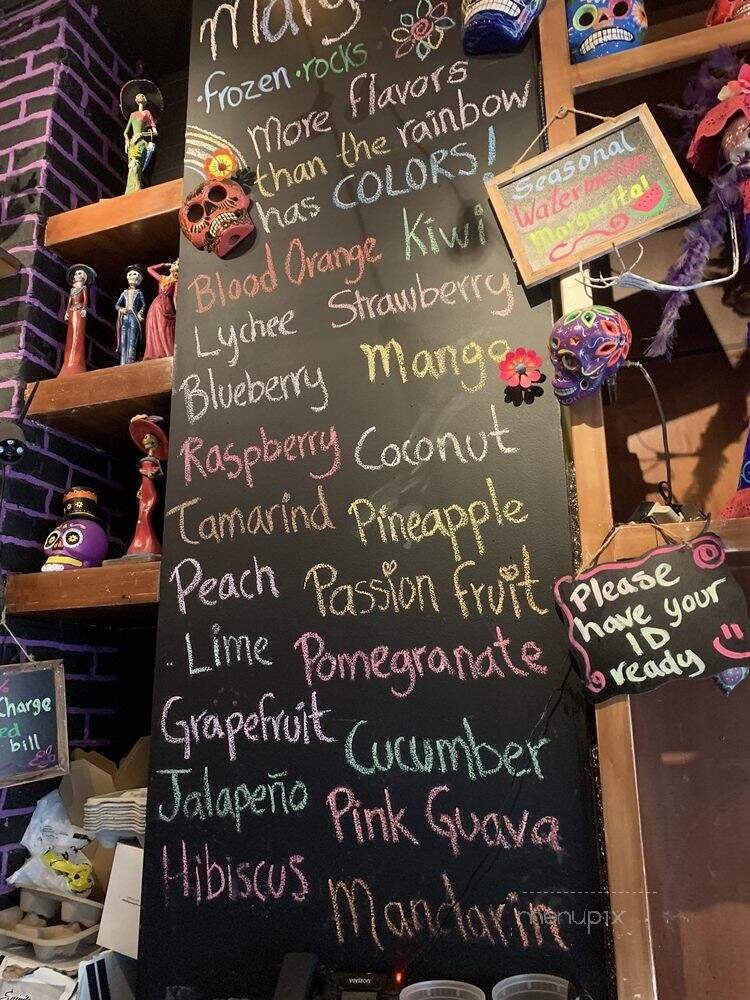 frozen · rocks
more flavors
than the rainbow
has COLORS!
Blood Orange Kiwi
Lychee Strawberry
Blueberry Mango
Raspberry Coconut
Tamarind Pineapple
Peach Passion fruit
Lime Pomegranate
Grapefruit Cucumber
Jalapeño Pink Guava
Hibiscus Mandarin
Seasonal
Watermelon
Margarita!
Please
have your
ID
ready
Charge
bill
menupix
verizon